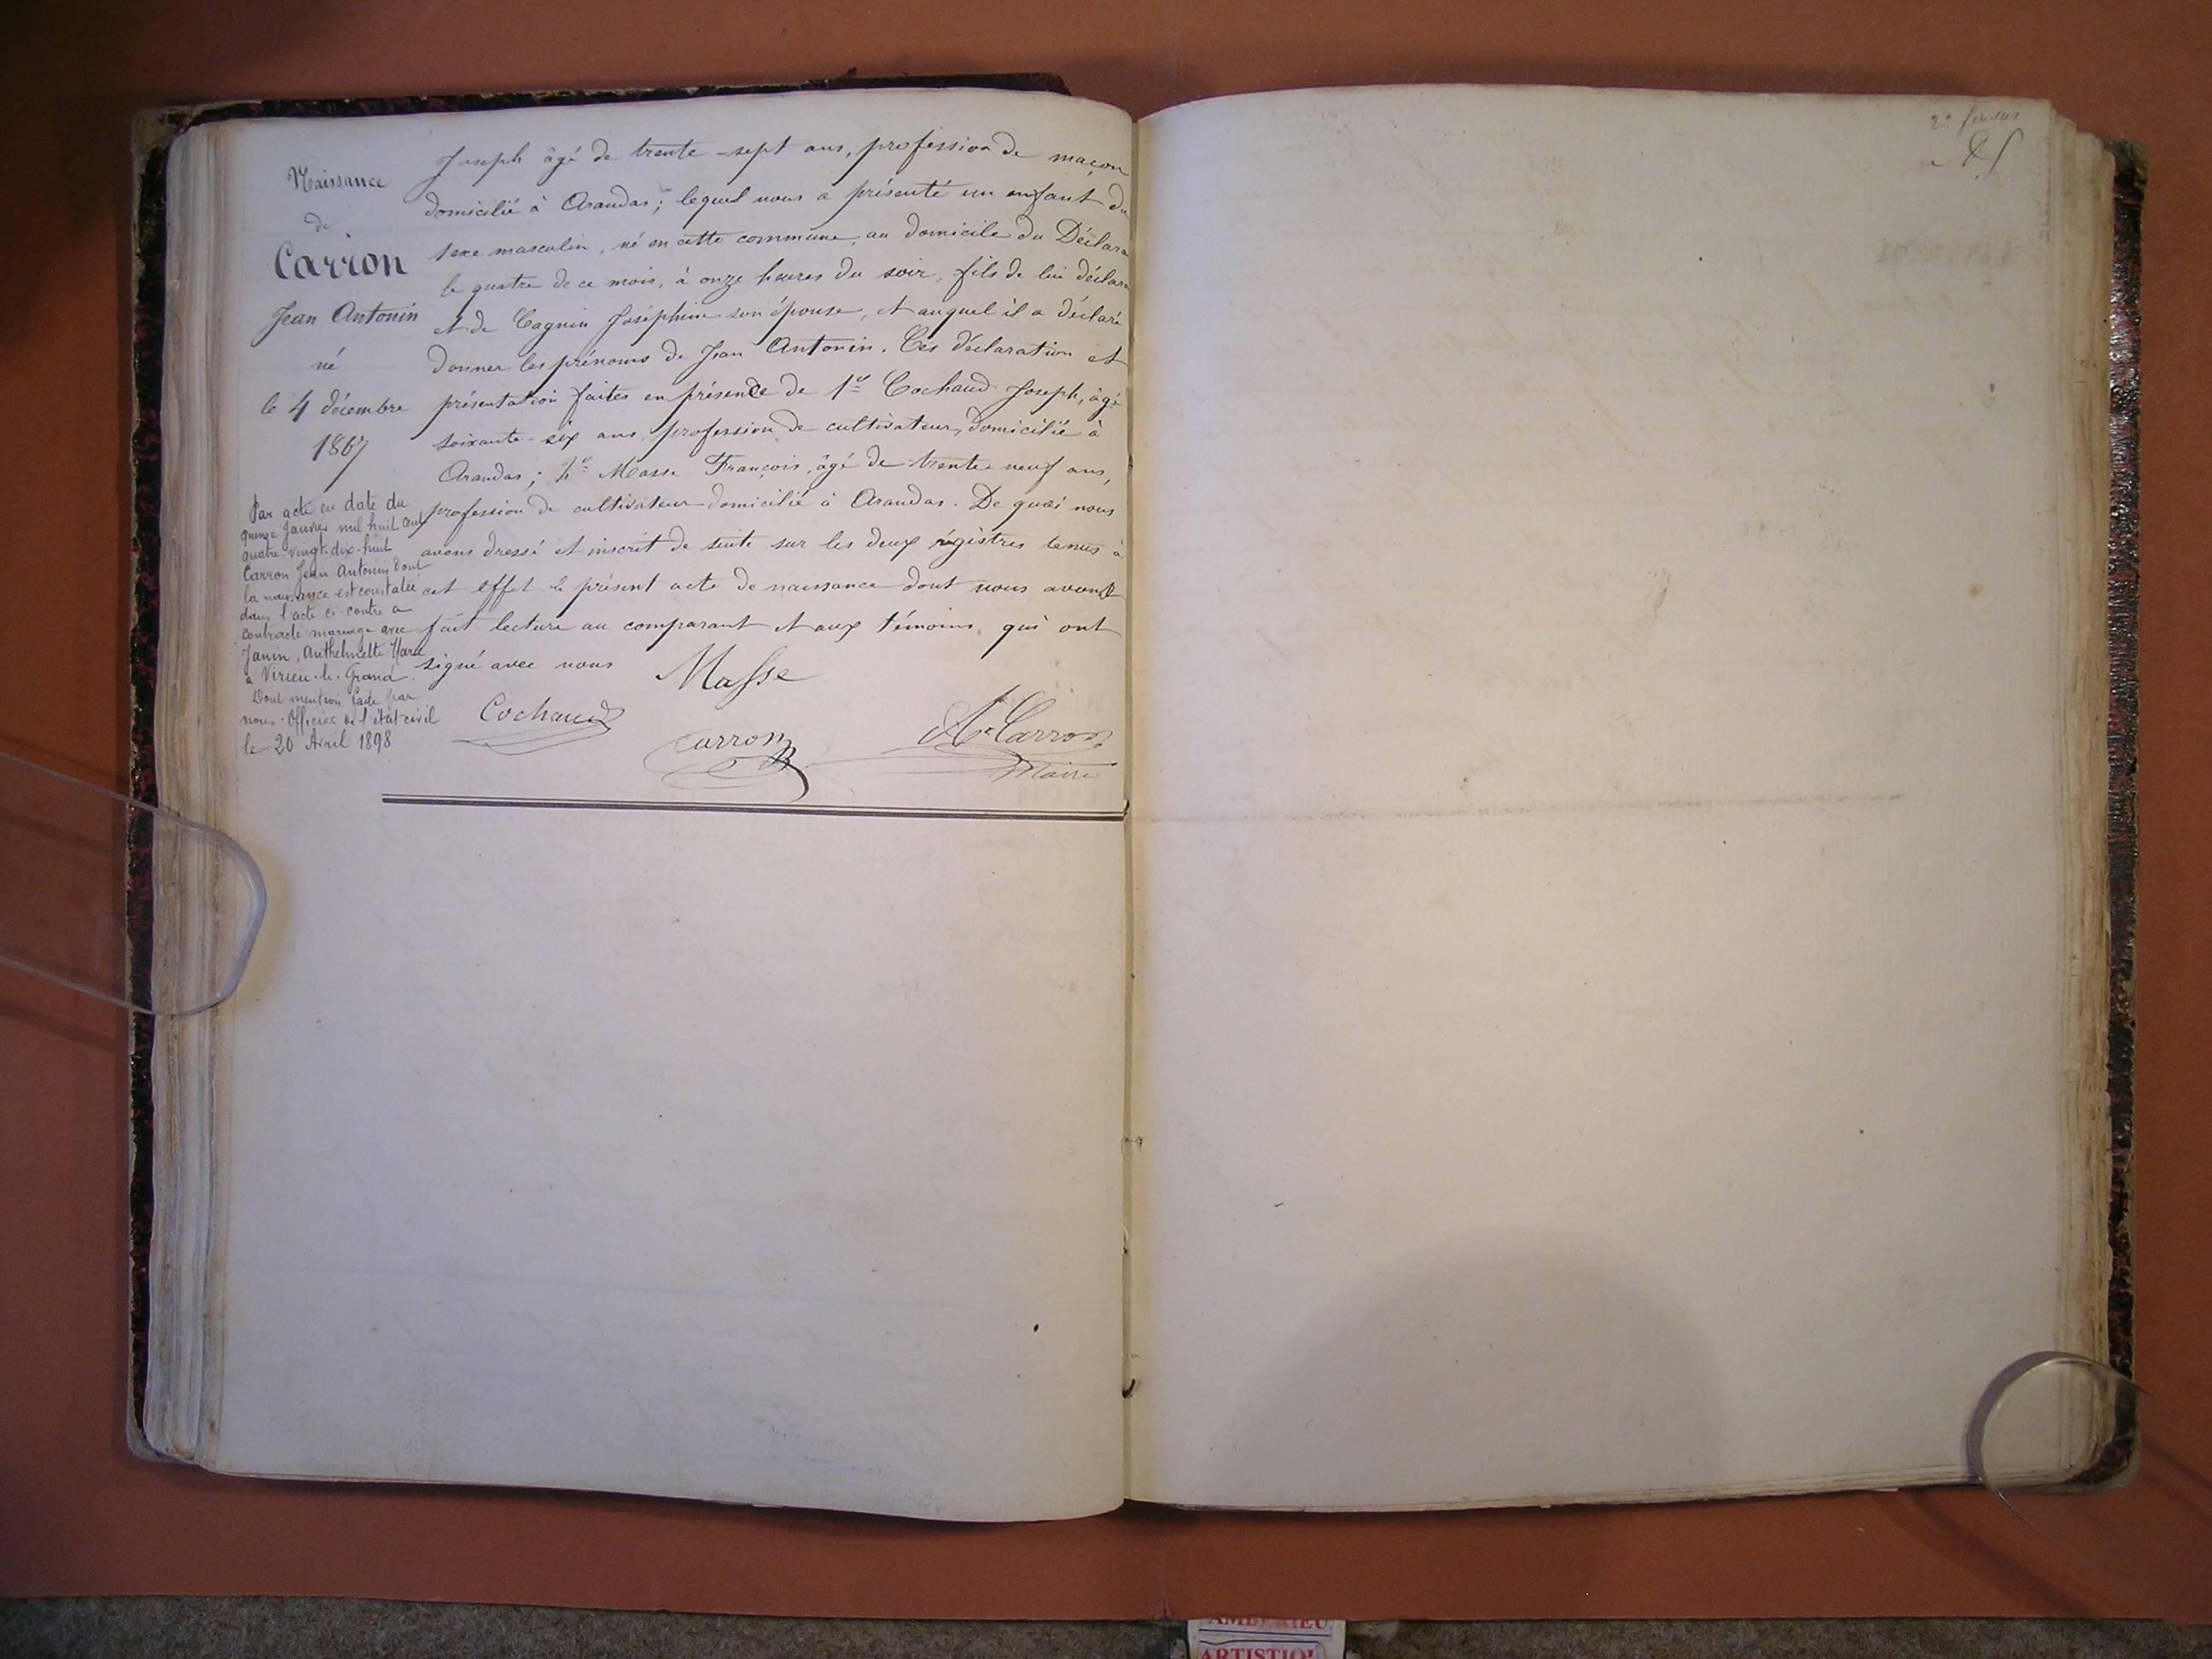 Naissance
de
Carron
Jean Antonin
né
le 4 décembre
1867
Par acte en date du
quinze Janvier mil huit cent
quatre-vingt-dix-huit
Carron Jean Antonin dont
la naissance est constatée
dans l'acte ci-contre a
contracté mariage avec
Janin, Anthelmette Marie
à Virieu-le-Grand.
Dont mention faite par
nous Officier de l'état civil
le 20 Avril 1898
Joseph âgé de trente-sept ans, profession de maçon
domicilié à Arandas; lequel nous a présenté un enfant du
sexe masculin, né en cette commune, au domicile du Déclara
le quatre de ce mois, à onze heures du soir, fils de lui déclara
et de Cagnin Joséphine son épouse, et auquel il a déclaré
donner les prénoms de Jean Antonin. Ces déclaration et
présentation faites en présence de 1º Cochaud Joseph, âgé
soixante-six ans, profession de cultivateur, domicilié à
Arandas; 2º Masse François, âgé de trente neuf ans,
profession de cultivateur domicilié à Arandas. De quoi nous
avons dressé et inscrit de suite sur les deux régistres tenus à
cet effet le présent acte de naissance dont nous avons
fait lecture au comparant et aux témoins qui ont
signé avec nous
Masse
Cochaud
Carron
Carron
Maire
2e feuillet
ARTISTIQ